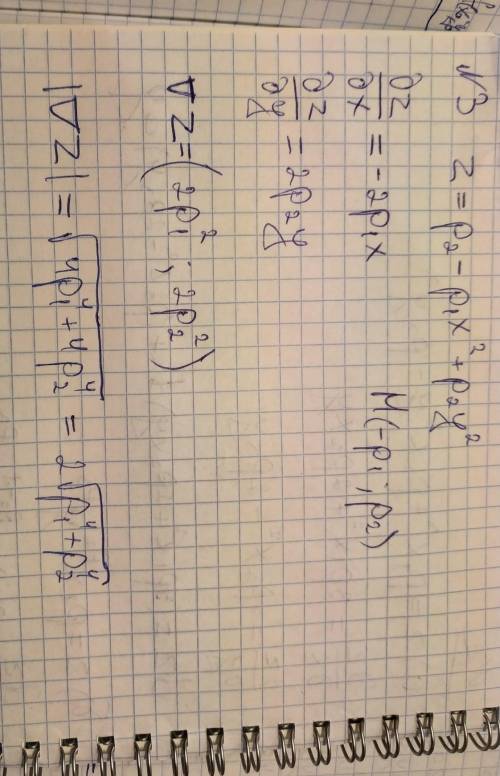 №3 z = p₂ - p₁x² + p₂y²
∂z/∂x = -2p₁x M(-p₁; p₂)
∂z/∂y = 2p₂y
∇z = (2p₁²; 2p₂²)
|∇z| = √(4p₁⁴ + 4p₂⁴) = 2√(p₁⁴ + p₂⁴)